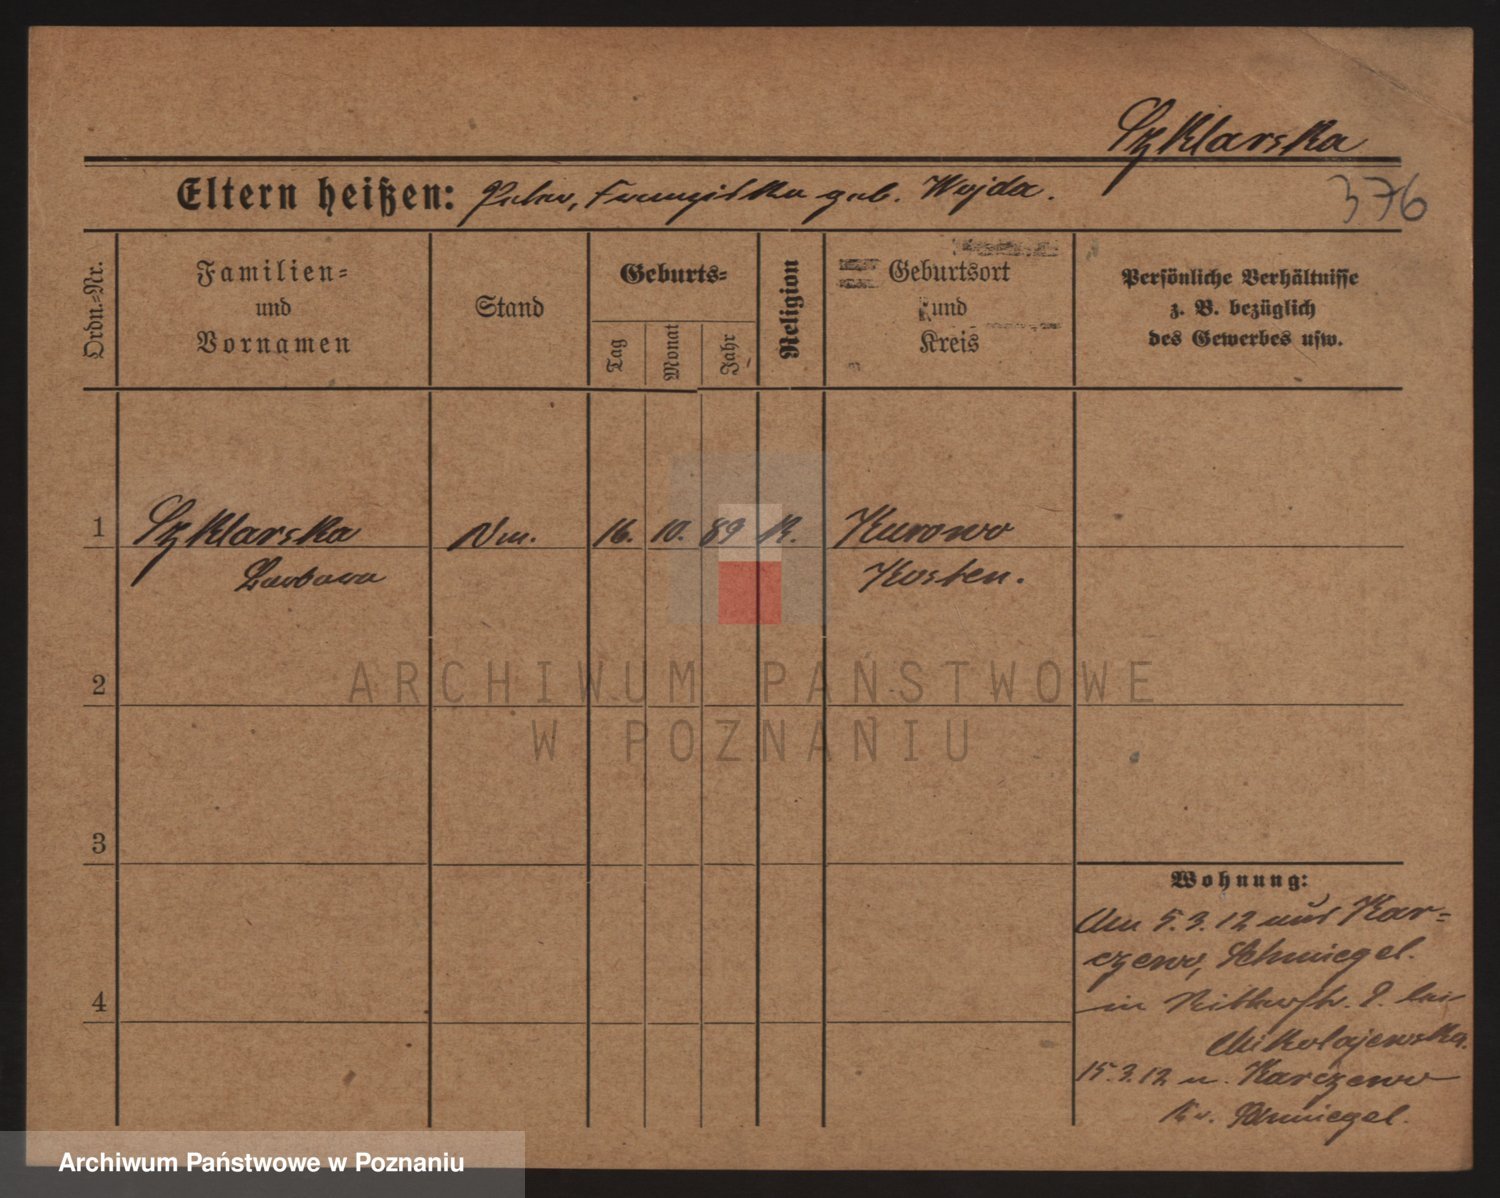 Szklarska
Eltern heißen: Peter, Franziska geb. Wojda.
376
Ordn.-Nr.
Familien-
und
Vornamen
Stand
Geburts-
Tag
Monat
Jahr
Religion
Geburtsort
und
Kreis
Persönliche Verhältnisse
z. B. bezüglich
des Gewerbes usw.
1 Szklarska 16. 10. 89 K. Kurowo
Barbara Kosten.
2
3
4
Wohnung:
Am 5.3.12 aus Kar-
czewo, Schmiegel.
in Ritterstr. bei
Mikolajewska.
15.3.12 n. Karczewo
Kr. Schmiegel.
ARCHIWUM PAŃSTWOWE
W POZNANIU
Archiwum Państwowe w Poznaniu